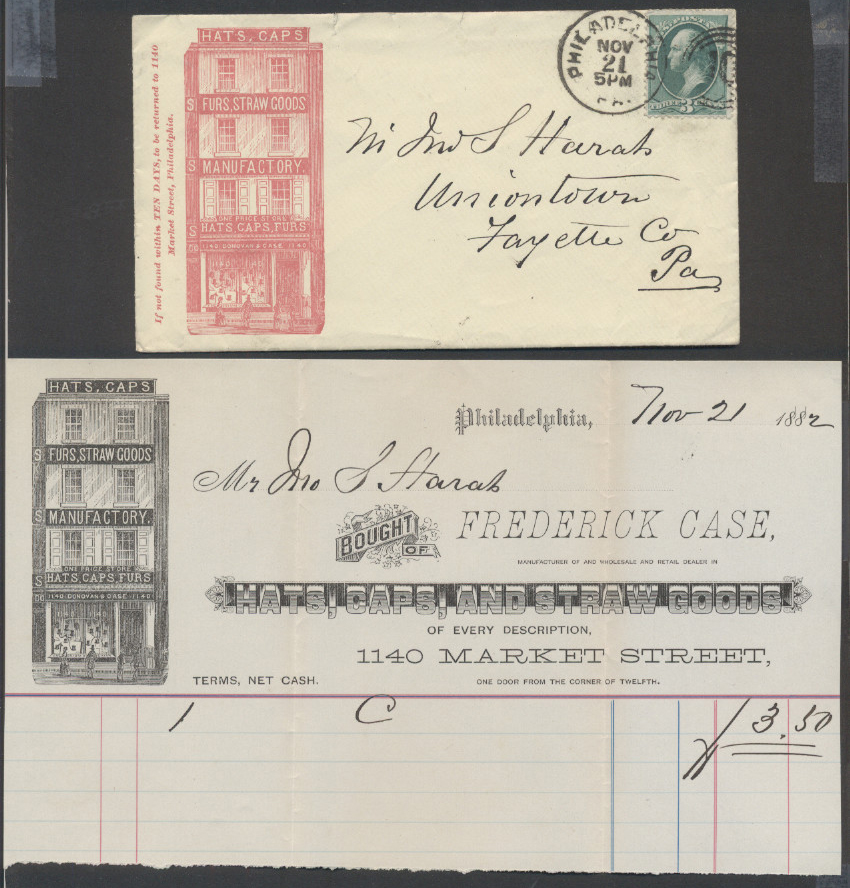 If not found within TEN DAYS, to be returned to 1140
Market Street, Philadelphia.
HATS, CAPS
S FURS, STRAW GOODS
S MANUFACTORY.
ONE PRICE STORE
S HATS, CAPS, FURS
1140 DONOVAN & CASE 1140
PHILADELPHIA
NOV
21
5PM
PA.
3
Mr Jno S Harah
Uniontown
Fayette Co
Pa
HATS, CAPS
S FURS, STRAW GOODS
S MANUFACTORY.
ONE PRICE STORE
S HATS, CAPS, FURS
1140 DONOVAN & CASE 1140
Philadelphia, Nov 21 1882
Mr Jno S Harah
BOUGHT OF FREDERICK CASE,
MANUFACTURER OF AND WHOLESALE AND RETAIL DEALER IN
HATS, CAPS, AND STRAW GOODS
OF EVERY DESCRIPTION,
1140 MARKET STREET,
TERMS, NET CASH.
ONE DOOR FROM THE CORNER OF TWELFTH.
1 C 3.50